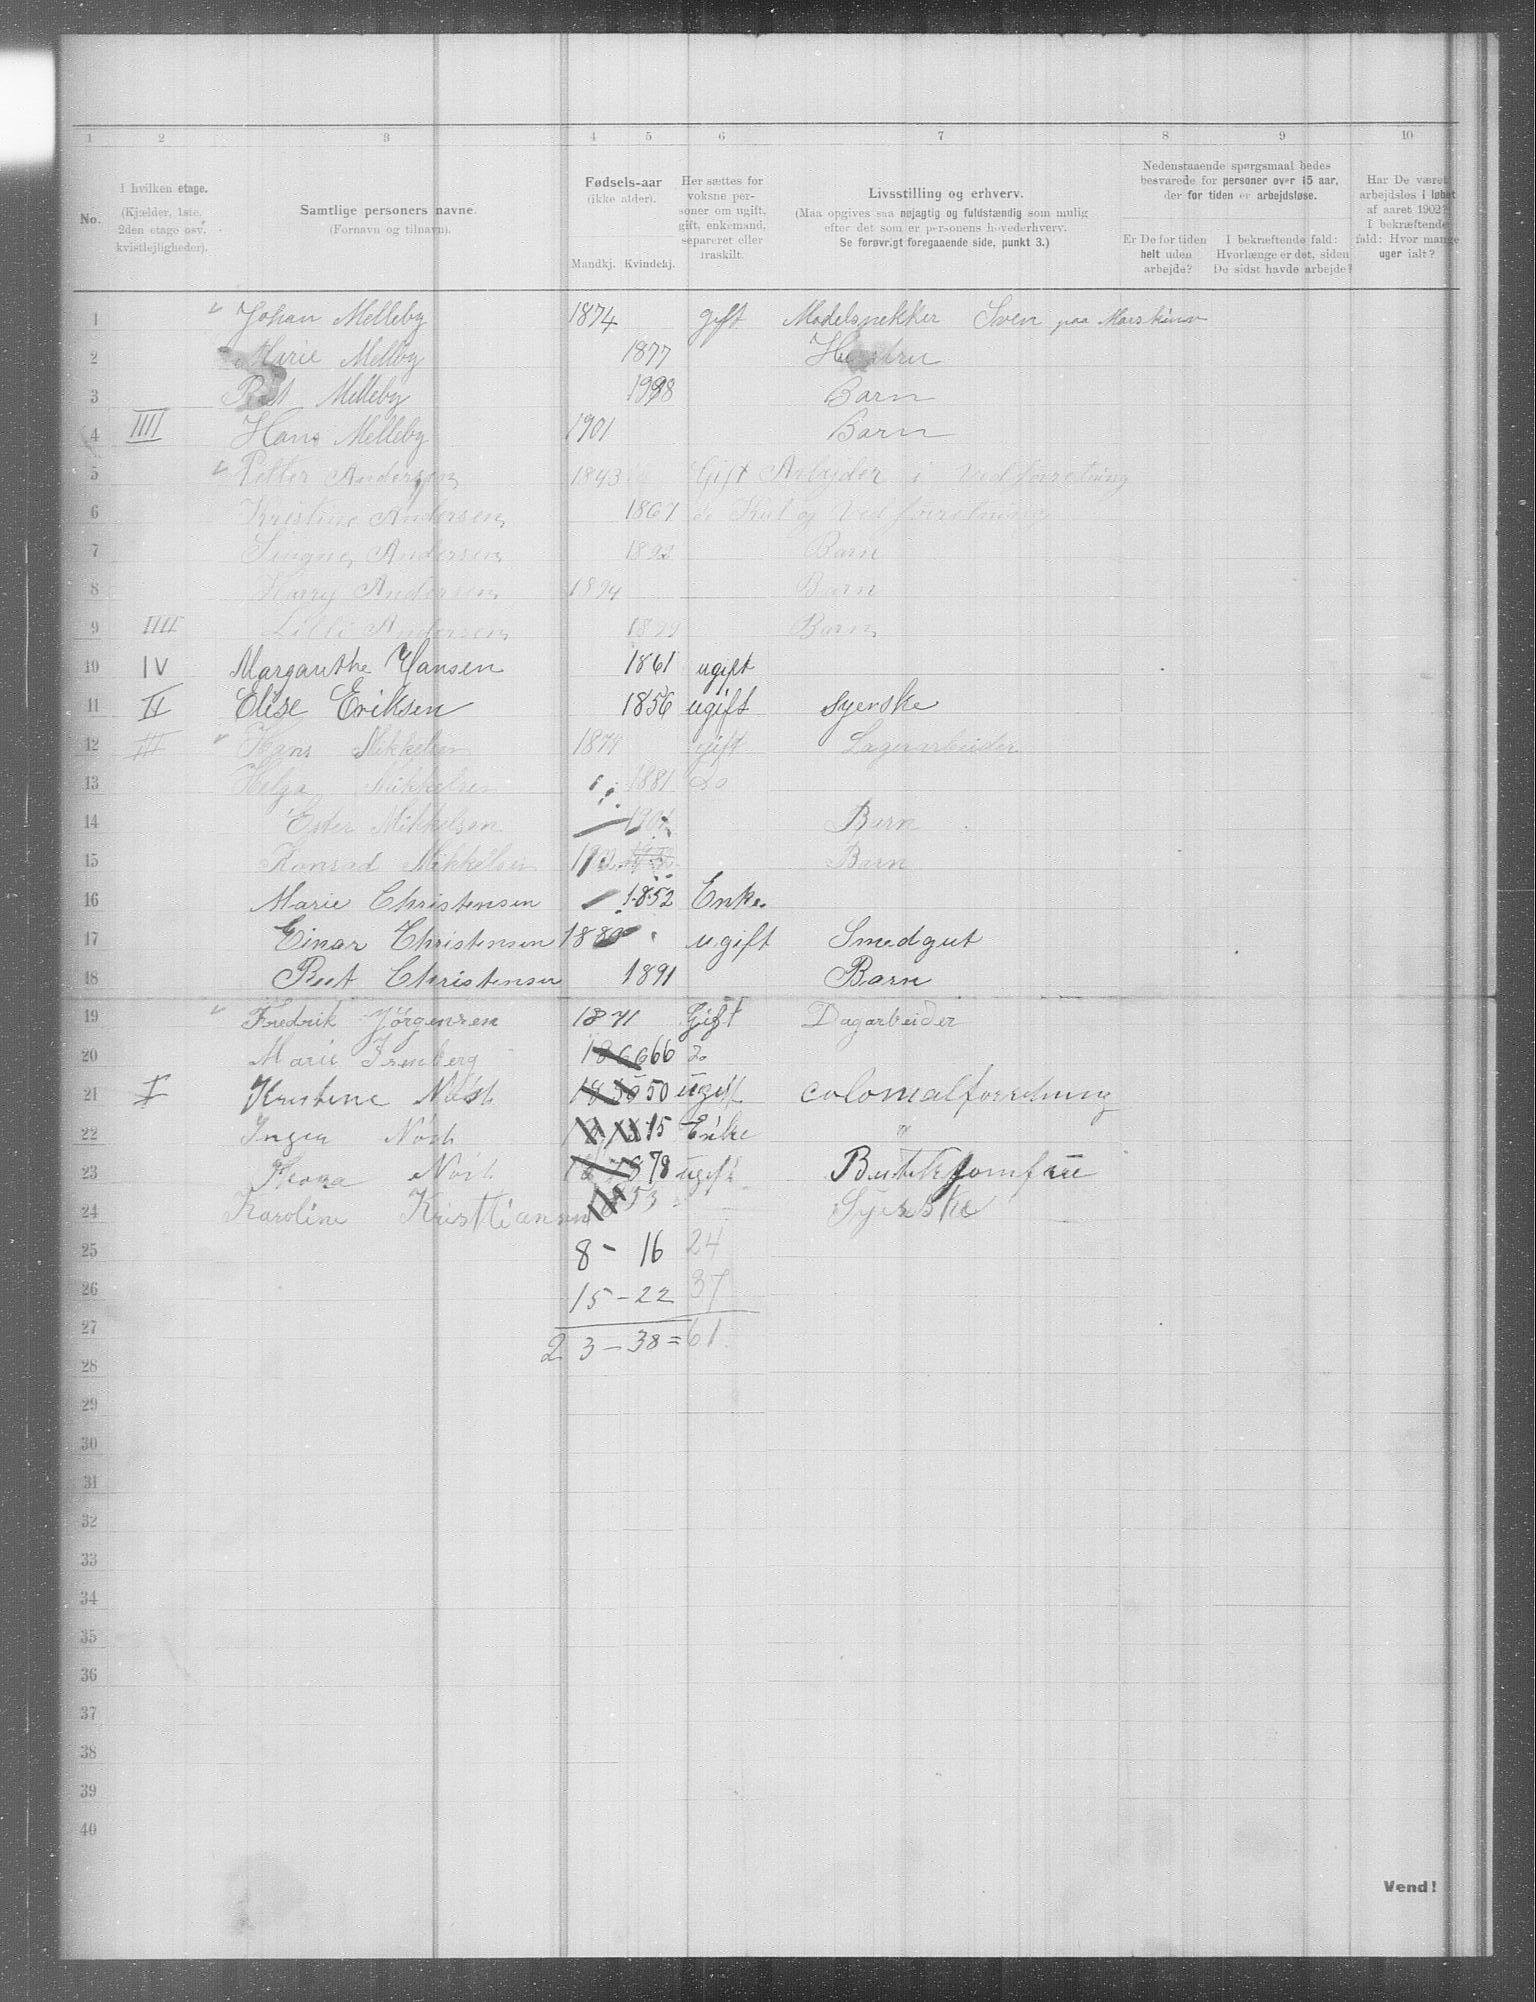 1 2 3 4 5 6 7 8 9 10
No.
I hvilken etage.
(Kjælder, 1ste, 2den etage osv. kvistlejligheder).
Samtlige personers navne.
(Fornavn og tilnavn).
Fødsels-aar
(ikke alder).
Mandkj. Kvindekj.
Her sættes for voksne personer om ugift, gift, enkemand, separeret eller fraskilt.
Livsstilling og erhverv.
(Maa opgives saa nøjagtig og fuldstændig som mulig efter det som er personens hovederhverv.
Se forøvrigt foregaaende side, punkt 3.)
Nedenstaaende spørgsmaal bedes besvarede for personer over 15 aar, der for tiden er arbejdsløse.
Er De for tiden helt uden arbejde?
I bekræftende fald: Hvorlænge er det, siden De sidst havde arbejde?
Har De været arbejdsløs i løbet af aaret 1902? I bekræftende fald: Hvor mange uger ialt?
1 Johan Melleby 1874 gift Modelsnekker Sven paa
2 Marie Melleby 1877
3 Melleby Barn
4 IIII Hans Melleby 1901 Barn
5 Petter Andersen 1843 Gift Arbejder i Vedforretning
6 Kristine Andersen 1867 do Kul og Ved forretning
7 Andersen 1892 Barn
8 Harry Andersen 1894 Barn
9 IIII Lilli Andersen 1899 Barn
10 IV Margarethe Hansen 1861 ugift
11 II Elise Eriksen 1856 ugift Syerske
12 III Hans Mikkelsen gift Lagerarbeider
13 Helga Mikkelsen 1881 do
14 Ester Mikkelsen Barn
15 Konrad Mikkelsen Barn
16 Marie Christensen 1852 Enke.
17 Einar Christensen ugift Smedgut
18 Christensen 1891 Barn
19 Fredrik Jörgensen 1871 Gift Dagarbeider
20 Marie 66 do
21 I Kristine 50 ugift colonialforretning
22 15 Enke "
23 78 ugift Butikjomfru
24 Karoline Kristiansen 53 Syerske
25 8 - 16 24
26 15 - 22 37
27 23 - 38 = 61
28
29
30
31
32
33
34
35
36
37
38
39
40
Vend!